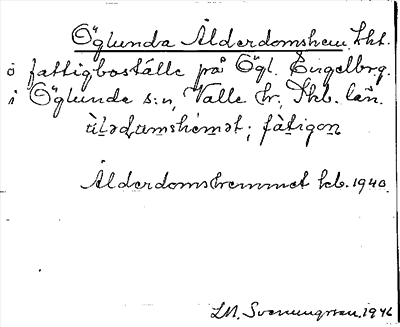 Öglunda Ålderdomshem, kht.
o fattigboställe på Ögl. Engelbrg.
i Öglunda s:n, Valle hr, Skb. län.
ùlədəmshémət; fàtigon
Ålderdomshemmet kb. 1940
LM. Svanungsson, 1946